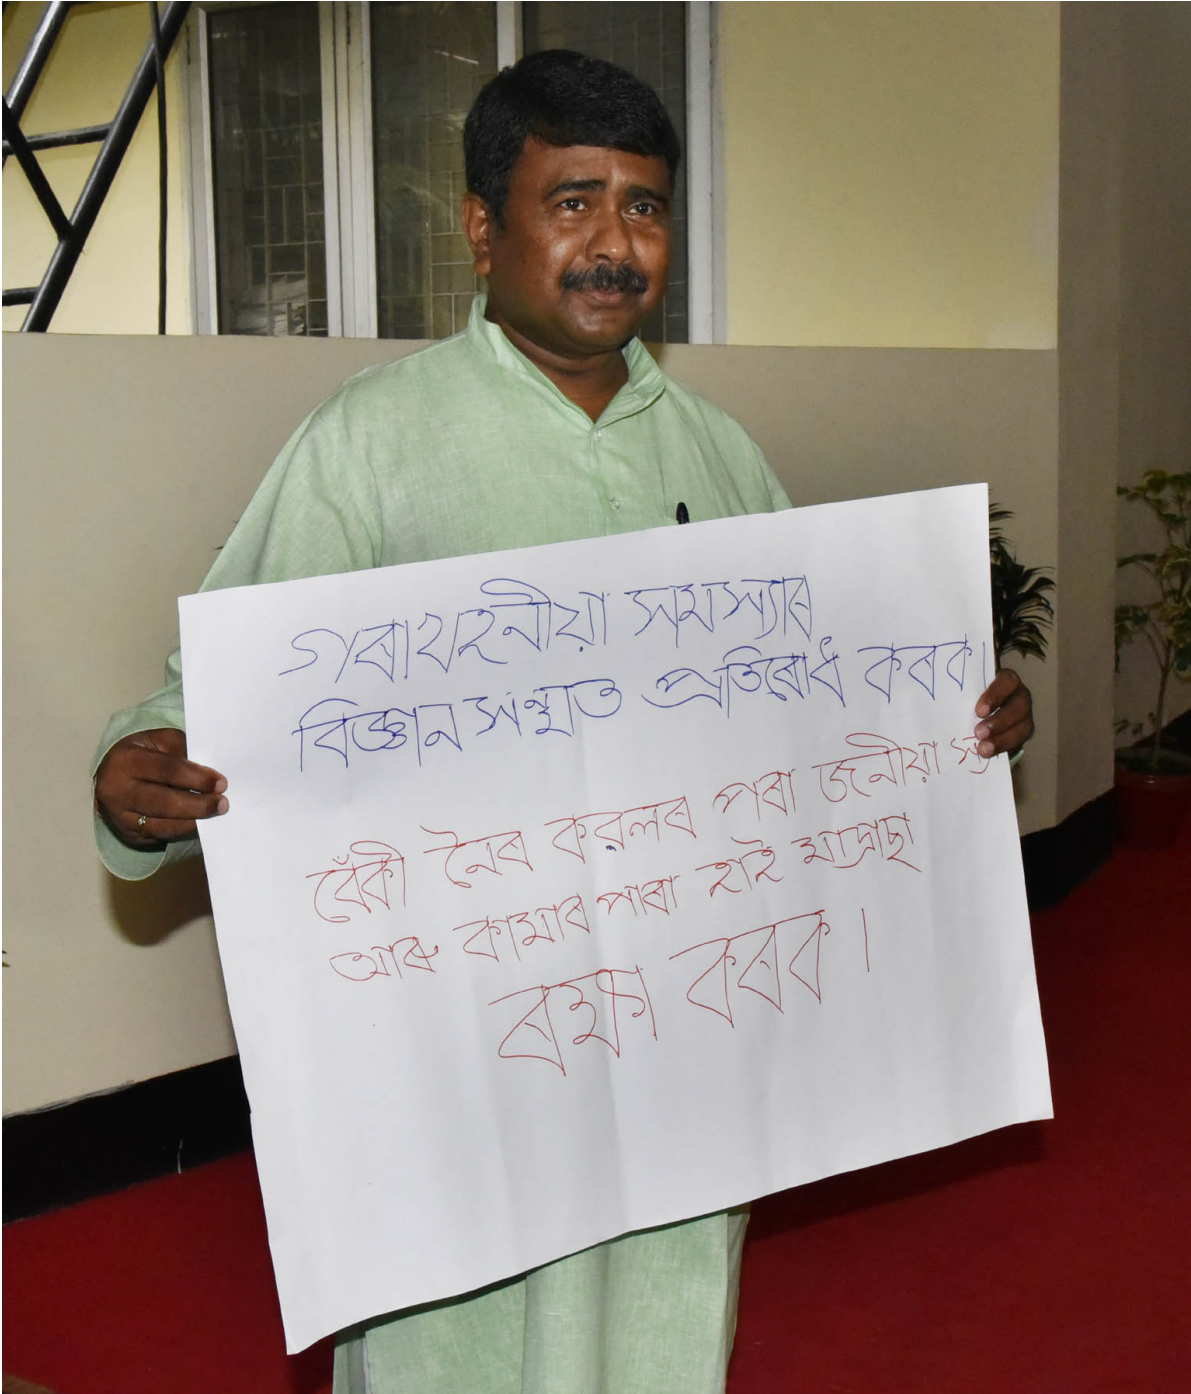 গৰাখহনীয়া সমস্যাৰ
বিজ্ঞান সন্মত প্ৰতিৰোধ কৰক।
বেঁকী নৈৰ কৱলৰ পৰা জনীয়া
আৰু কামাৰ পাৰা হাই মাদ্ৰাছা
ৰক্ষা কৰক।